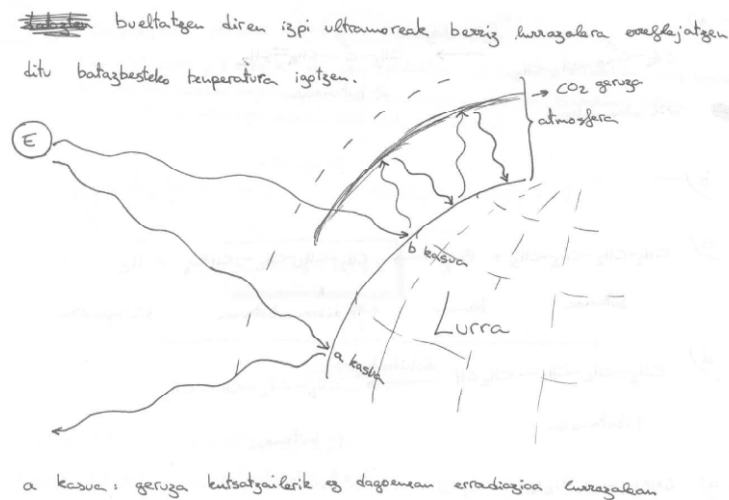 bueltatzen diren izpi ultramoreak berriz lurrazalera erreflejatzen
ditu batazbesteko tenperatura igotzen.
→ CO2 geruza
atmosfera
E
b kasua
Lurra
a kasua
a kasua: geruza kutsatzailerik ez dagoenean erradiazioa lurrazalean